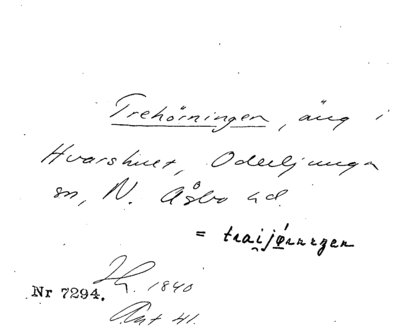 Trehörningen, äng i
Hvarshult, Oderljunga
sn, N. Åsbo hd.
= traijø̱nn
Nr 7294. 1840
Ant 41.